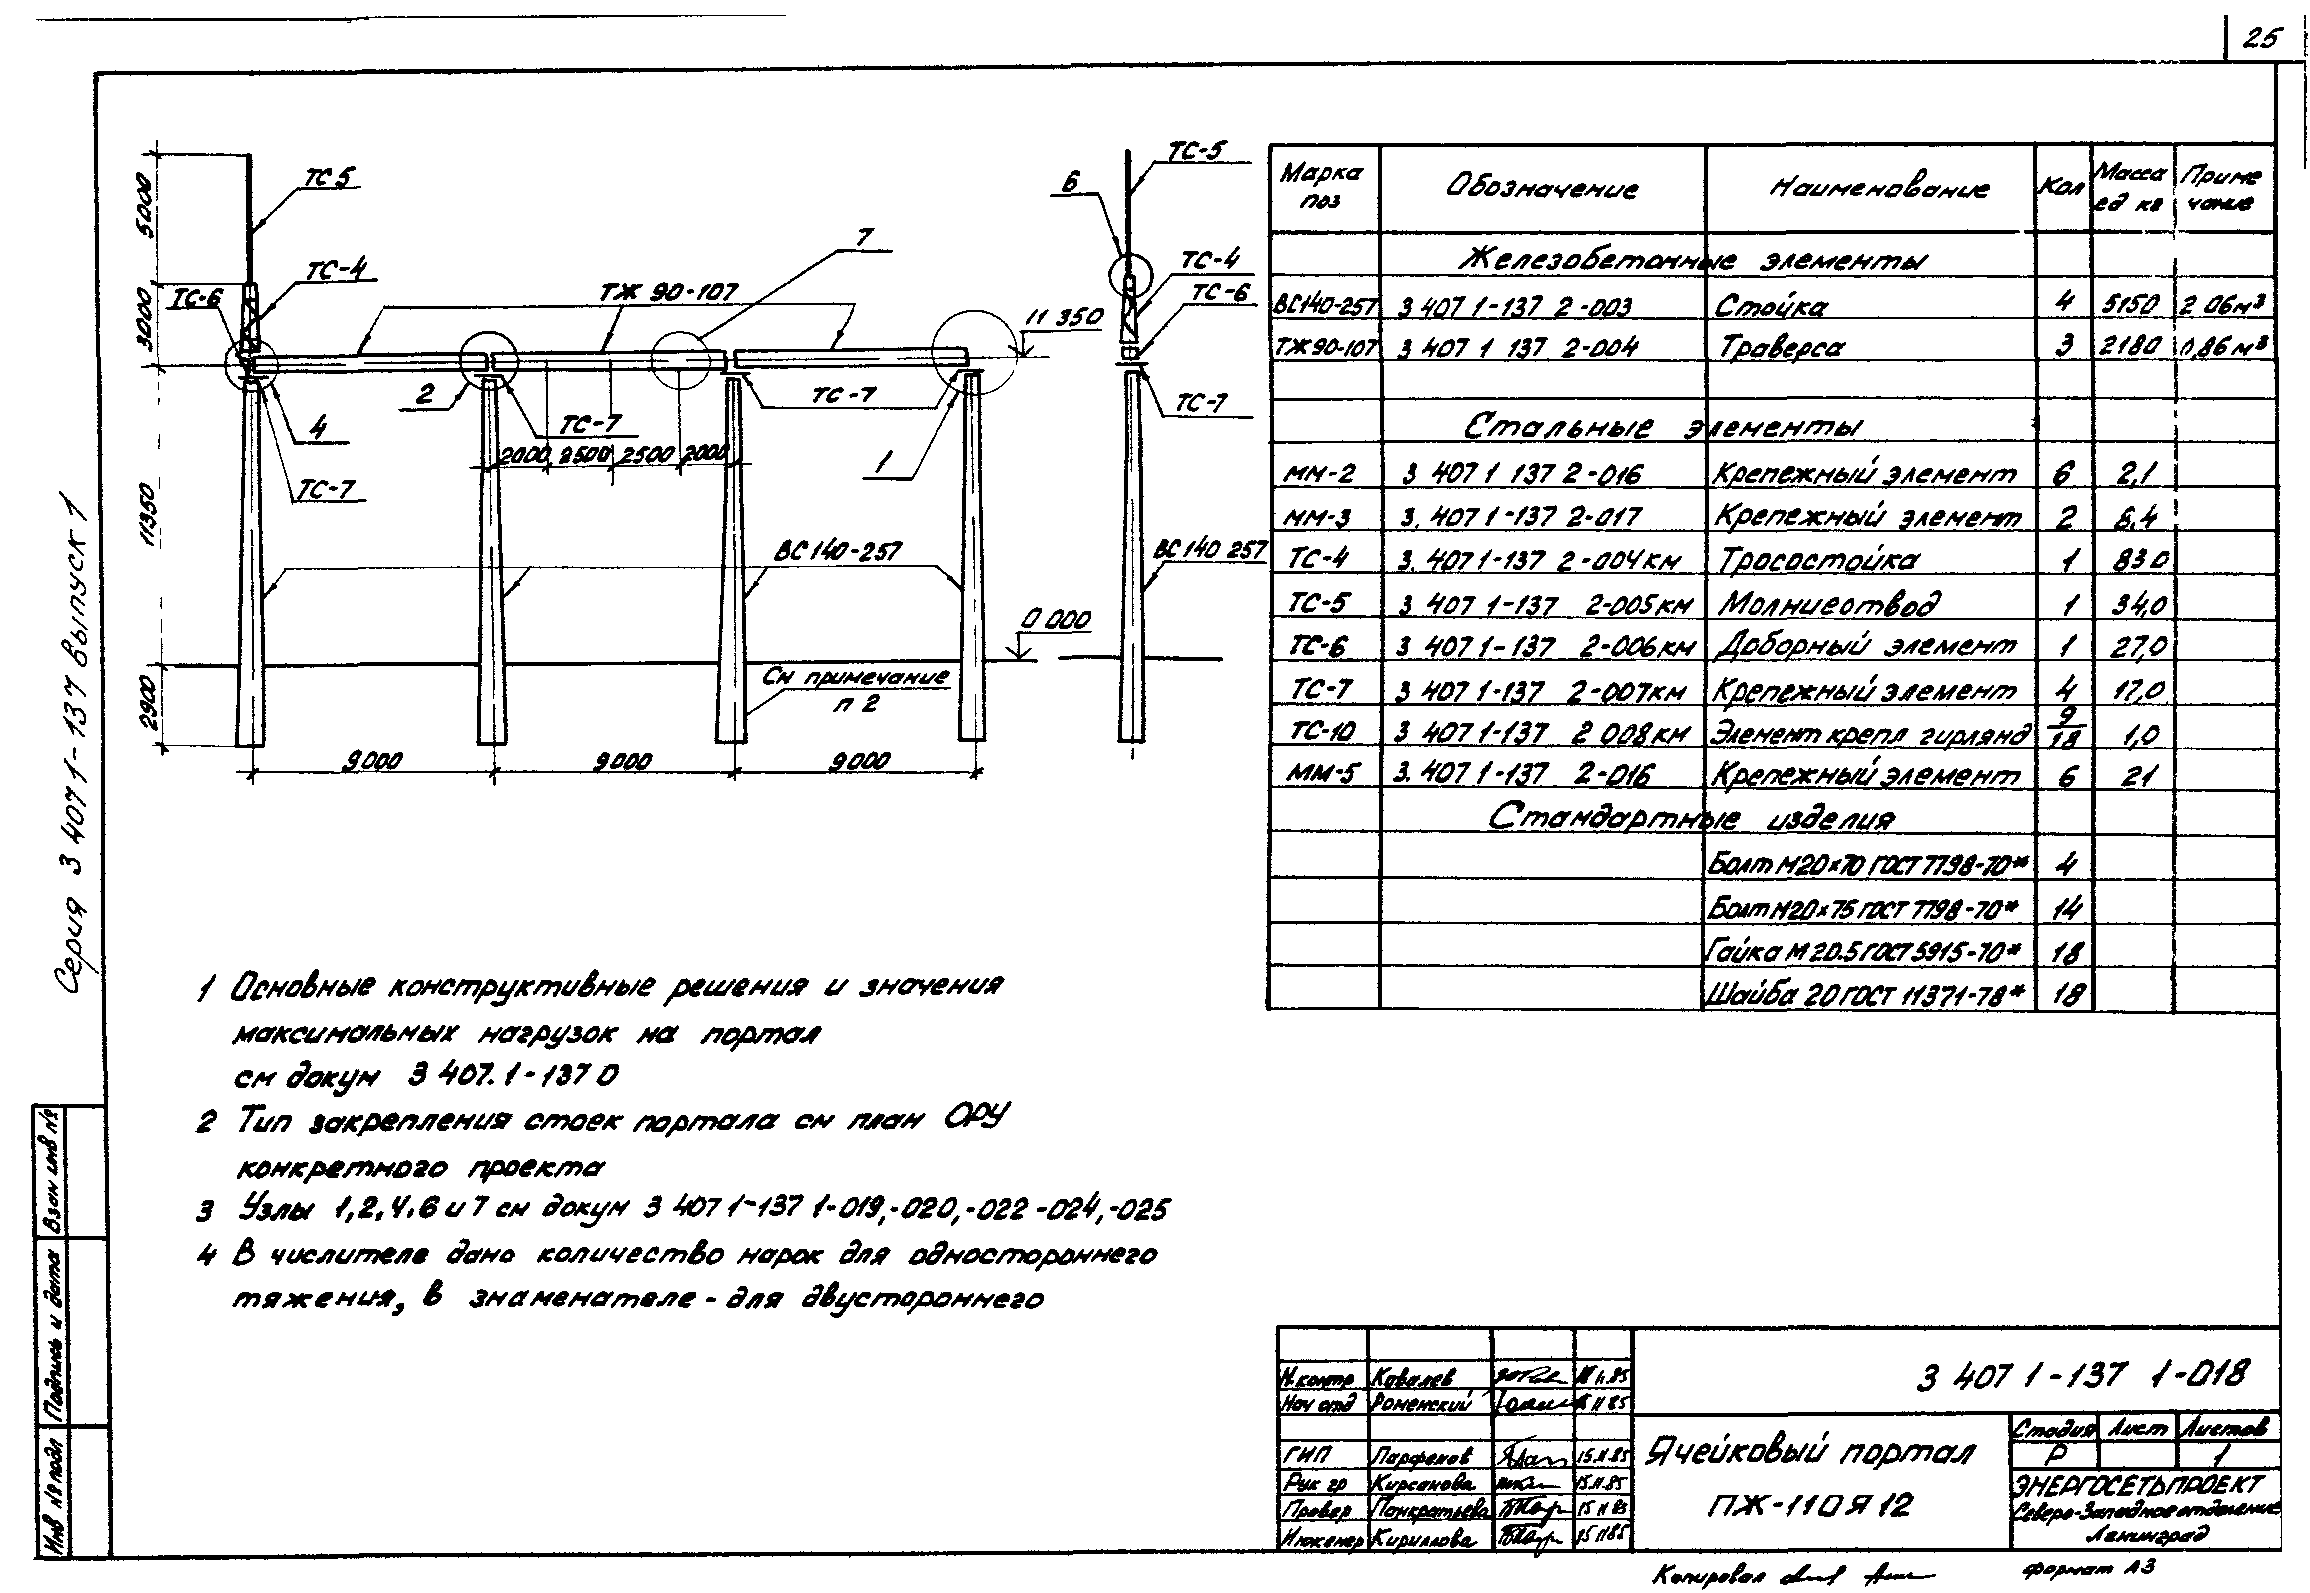 25
Серия 3 407 1-137 выпуск 1
ТС 5
ТС-4
ТС-6
ТЖ 90-107
7
11 350
2
4
ТС-7
ТС-7
ТС-7
1
5000
3000
11350
2900
2000 2500 2500 2000
ВС 140-257
0 000
См примечание
п 2
9000 9000 9000
ТС-5
6
ТС-4
ТС-6
ТС-7
ВС 140 257
Марка поз Обозначение Наименование Кол Масса ед кг Приме чание
Железобетонные элементы
ВС140-257 3 407 1-137 2-003 Стойка 4 5150 2 06м³
ТЖ90-107 3 407 1 137 2-004 Траверса 3 2180 0,86м³
Стальные элементы
ММ-2 3 407 1 137 2-016 Крепежный элемент 6 2,1
ММ-3 3. 407 1-137 2-017 Крепежный элемент 2 6.4
ТС-4 3. 407 1-137 2-004км Тросостойка 1 83 0
ТС-5 3 407 1-137 2-005км Молниеотвод 1 34,0
ТС-6 3 407 1-137 2-006км Доборный элемент 1 27,0
ТС-7 3 407 1-137 2-007км Крепежный элемент 4 17,0
ТС-10 3 407 1-137 2 008км Элемент крепл гирлянд 9/18 1,0
ММ-5 3. 407 1-137 2-016 Крепежный элемент 6 21
Стандартные изделия
Болт М20×70 ГОСТ 7798-70* 4
Болт М20×75 ГОСТ 7798-70* 14
Гайка М 20.5 ГОСТ 5915-70* 18
Шайба 20 ГОСТ 11371-78* 18
1 Основные конструктивные решения и значения
максимальных нагрузок на портал
см докум 3 407. 1-137 0
2 Тип закрепления стоек портала см план ОРУ
конкретного проекта
3 Узлы 1, 2, 4, 6 и 7 см докум 3 407 1-137 1-019,-020,-022 -024,-025
4 В числителе дано количество марок для одностороннего
тяжения, в знаменателе - для двустороннего
Взам инв №
Подпись и дата
Инв № подл
Н. контр Ковалев
Нач отд Роменский
ГИП Парфенов 15.11.85
Рук гр Кирсанова 15.11.85
Провер Панкратьева 15 11 85
Инженер Кириллова 15 11 85
3 407 1-137 1-018
Ячейковый портал
ПЖ-110 Я 12
Стадия Лист Листов
Р 1
ЭНЕРГОСЕТЬПРОЕКТ
Северо-Западное отделение
Ленинград
Копировал
формат А3